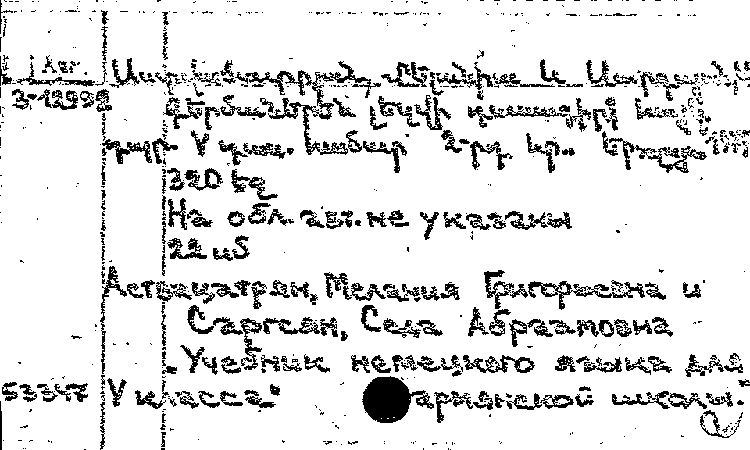 Авт. Աստվածատրյան, Մելանիա և Սարգսյան
3-12992 գերմաներեն լեզվի դասագիրք հայ.
դպր. V դաս. համար 2-րդ հր.. Երևան
320 էջ
На обл. авт. не указаны
22 սմ
Аствацатрян, Мелания Григорьевна и
Саргсян, Седа Абраамовна
„Учебник немецкого языка для
53347 V класса" армянской школы."